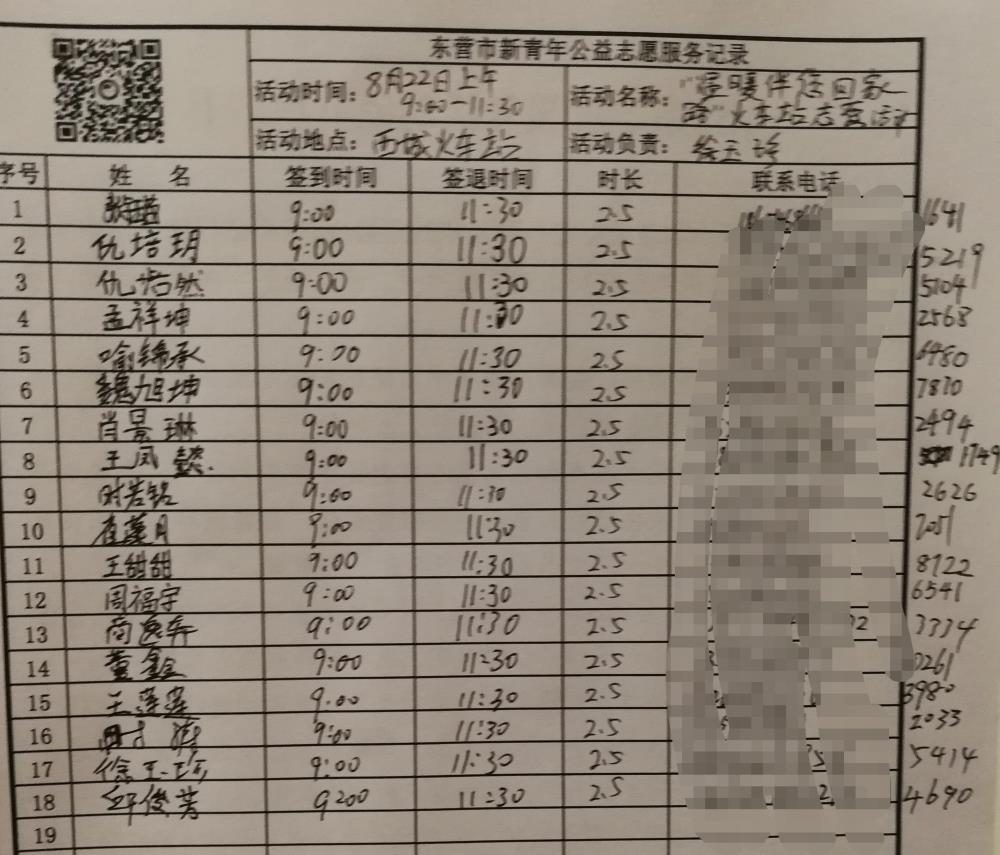 东营市新青年公益志愿服务记录
活动时间：8月22日上午 9:00-11:30 活动名称："温暖伴您回家路"火车站志愿活动
活动地点：西城火车站 活动负责：徐玉珍
序号 姓 名 签到时间 签退时间 时长 联系电话
1 9:00 11:30 2.5 1641
2 仇培玥 9:00 11:30 2.5 5219
3 仇浩然 9:00 11:30 2.5 5104
4 孟祥坤 9:00 11:30 2.5 2568
5 喻锦承 9:00 11:30 2.5 6480
6 魏旭坤 9:00 11:30 2.5 7810
7 肖景琳 9:00 11:30 2.5 2494
8 王凤懿 9:00 11:30 2.5 1749
9 时若铭 9:00 11:30 2.5 2626
10 崔莲月 9:00 11:30 2.5 7051
11 王甜甜 9:00 11:30 2.5 8122
12 周福宇 9:00 11:30 2.5 6541
13 商逸轩 9:00 11:30 2.5 3334
14 董鑫 9:00 11:30 2.5 0261
15 王莲莲 9:00 11:30 2.5 3980
16 9:00 11:30 2.5 2033
17 徐玉珍 9:00 11:30 2.5 5414
18 邱俊芳 9:00 11:30 2.5 4690
19